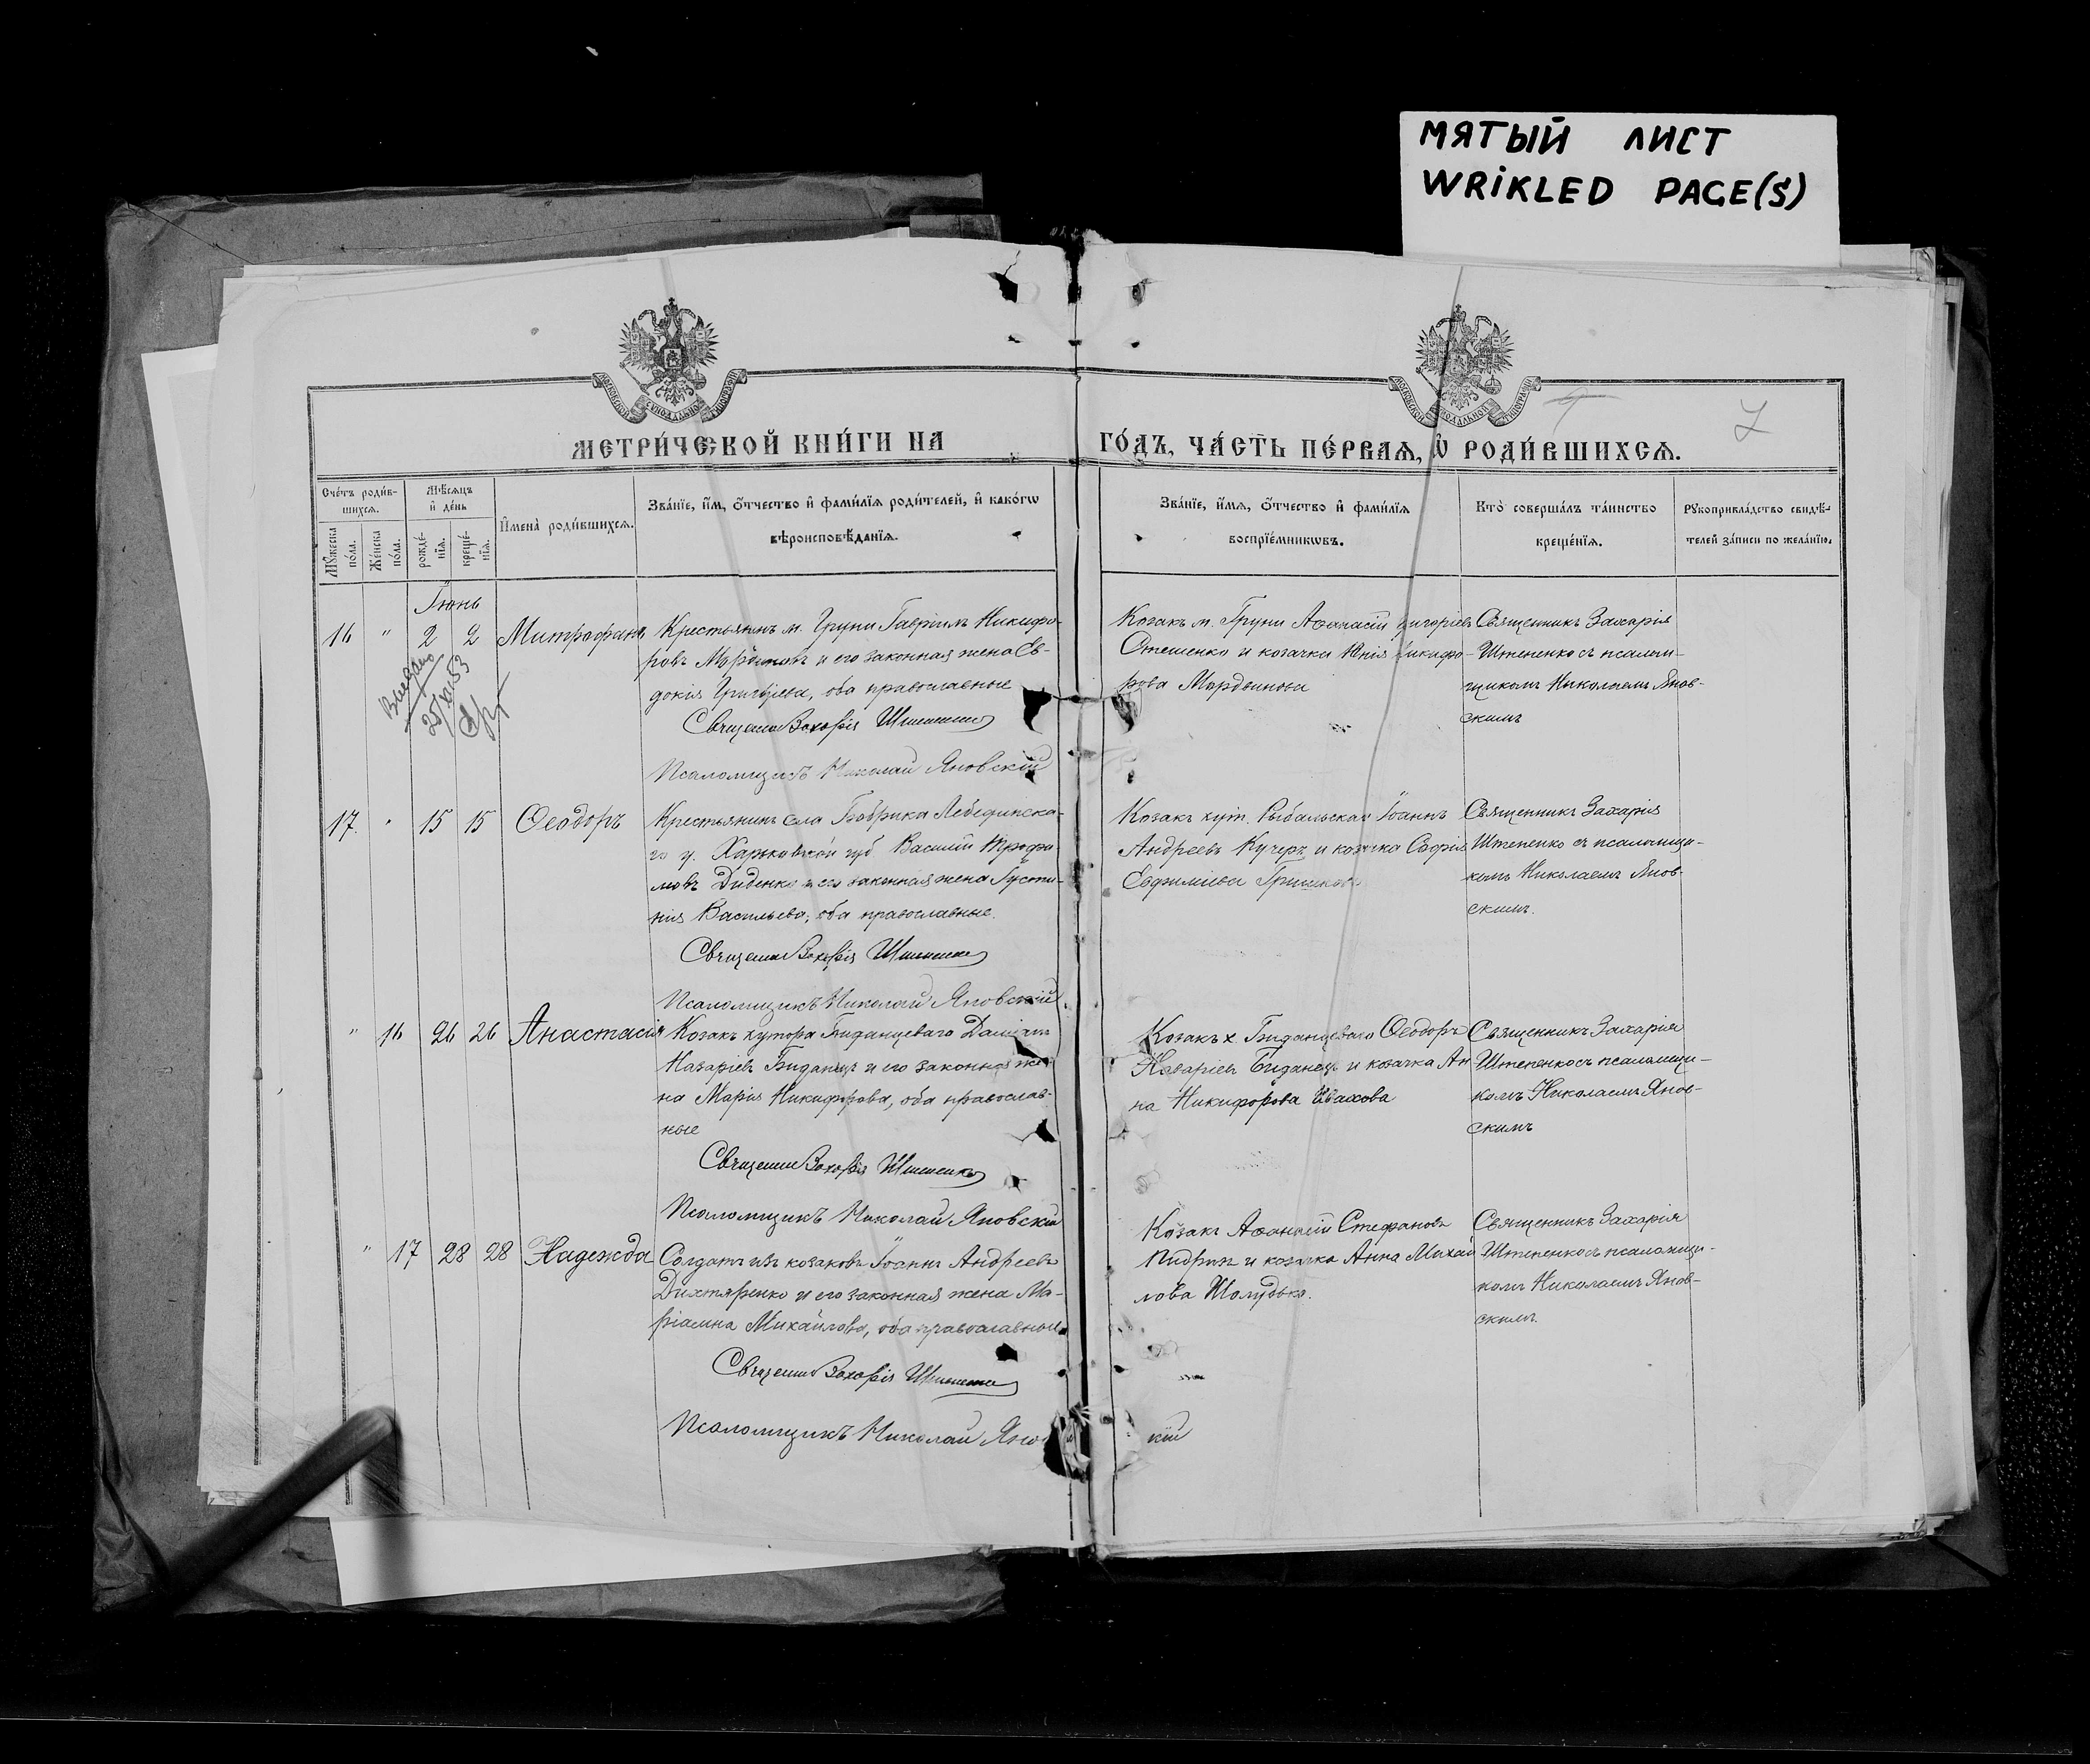 МЯТЫЙ ЛИСТ
WRIKLED PAGE(S)
МОСКОВСКОЙ СѴНОДАЛЬНОЙ ТИПОГРАФІИ
МОСКОВСКОЙ СѴНОДАЛЬНОЙ ТИПОГРАФІИ
7
МЕТРИ́ЧЕСКОЙ КНИ́ГИ НА
ГО́ДЪ, ЧА́СТЬ ПЕ́РВАѦ, Ѡ РОДИ́ВШИХСѦ.
Сче́тъ роди́в-
шихсѧ.
Мꙋ́жеска
по́ла.
Же́нска
по́ла.
Мѣ́сѧцъ
и҆ де́нь
рожде́-
нїѧ.
креще́-
нїѧ.
И҆мена̀ роди́вшихсѧ.
Зва́нїе, и҆́мѧ, о҆́тчество и҆ фами́лїѧ роди́телей, и҆ како́гѡ
вѣроисповѣ́данїѧ.
Зва́нїе, и҆́мѧ, о҆́тчество и҆ фами́лїѧ
воспрїе́мникѡвъ.
Кто̀ соверша́лъ та́инство
креще́нїѧ.
Рꙋкоприкла́дство свидѣ́-
телей за́писи по жела́нїю.
Іюнь
16 " 2 2 Митрофанъ
Выдано
25/XI 53
Крестьянинъ м. Груни Гавріилъ Никифо-
ровъ и его законная жена Ев-
докія Григорьева, оба православные
Священн Захарія Штепенко
Псаломщикъ Николай Яновскій
Козакъ м. Груни Аѳанасій Григоріевъ
и козачка Никифо-
рова Мордвинова
Священникъ Захарія
Штепенко съ псалом-
щикомъ Николаемъ Янов-
скимъ
17 " 15 15 Ѳеодоръ
Крестьянинъ села Бобрика Лебединска-
го у. Харьковской губ Василій Трофи-
мовъ Диденко и его законная жена Іусти-
нія Васильева, оба православные.
Священн Захарія Штепенко
Псаломщикъ Николай Яновскій
Козакъ хут. Рыбальскаго Іоаннъ
Андреевъ Кучеръ и козачка Софія
Евфиміева
Священникъ Захарія
Штепенко съ псаломщи-
комъ Николаемъ Янов-
скимъ.
" 16 26 26 Анастасія
Козакъ хутора Биданцеваго Даміанъ
Назаріевъ Биданецъ и его законная же-
на Марія Никифорова, оба православ-
ные
Священн Захарія Штепенко
Псаломщикъ Николай Яновскій
Козакъ х. Биданцеваго Ѳеодоръ
Назаріевъ Биданецъ и козачка Ан
на Никифорова Ивахова
Священникъ Захарія
Штепенко съ псаломщи-
комъ Николаемъ Янов-
скимъ
" 17 28 28 Надежда
Солдатъ изъ козаковъ Іоаннъ Андреевъ
Дихтяренко и его законная жена Ма-
ріамна Михайлова, оба православные
Священн Захарія Штепенко
Псаломщикъ Николай Яновскій
Козакъ Аѳанасій Стефановъ
и козачка Анна Михай
лова Шолудько.
Священникъ Захарія
Штепенко съ псаломщи-
комъ Николаемъ Янов-
скимъ.